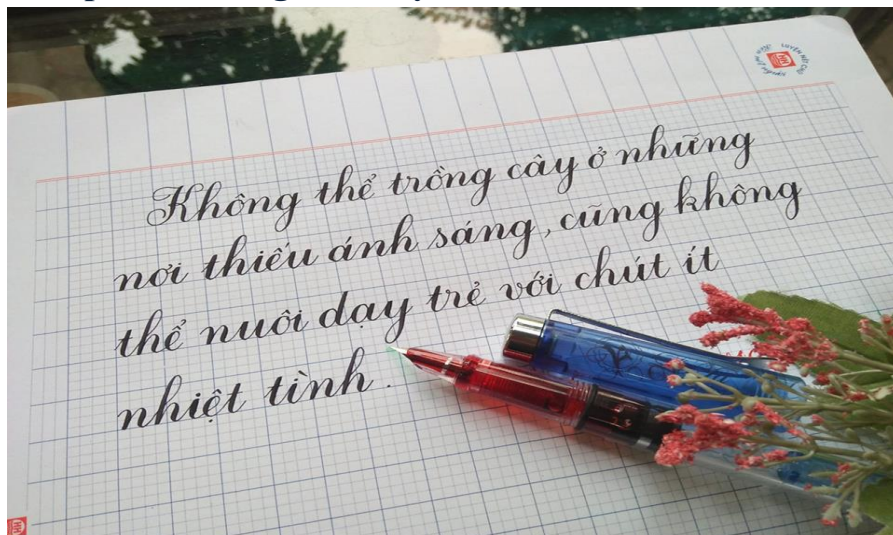 Không thể trồng cây ở những
nơi thiếu ánh sáng, cũng không
thể nuôi dạy trẻ với chút ít
nhiệt tình.